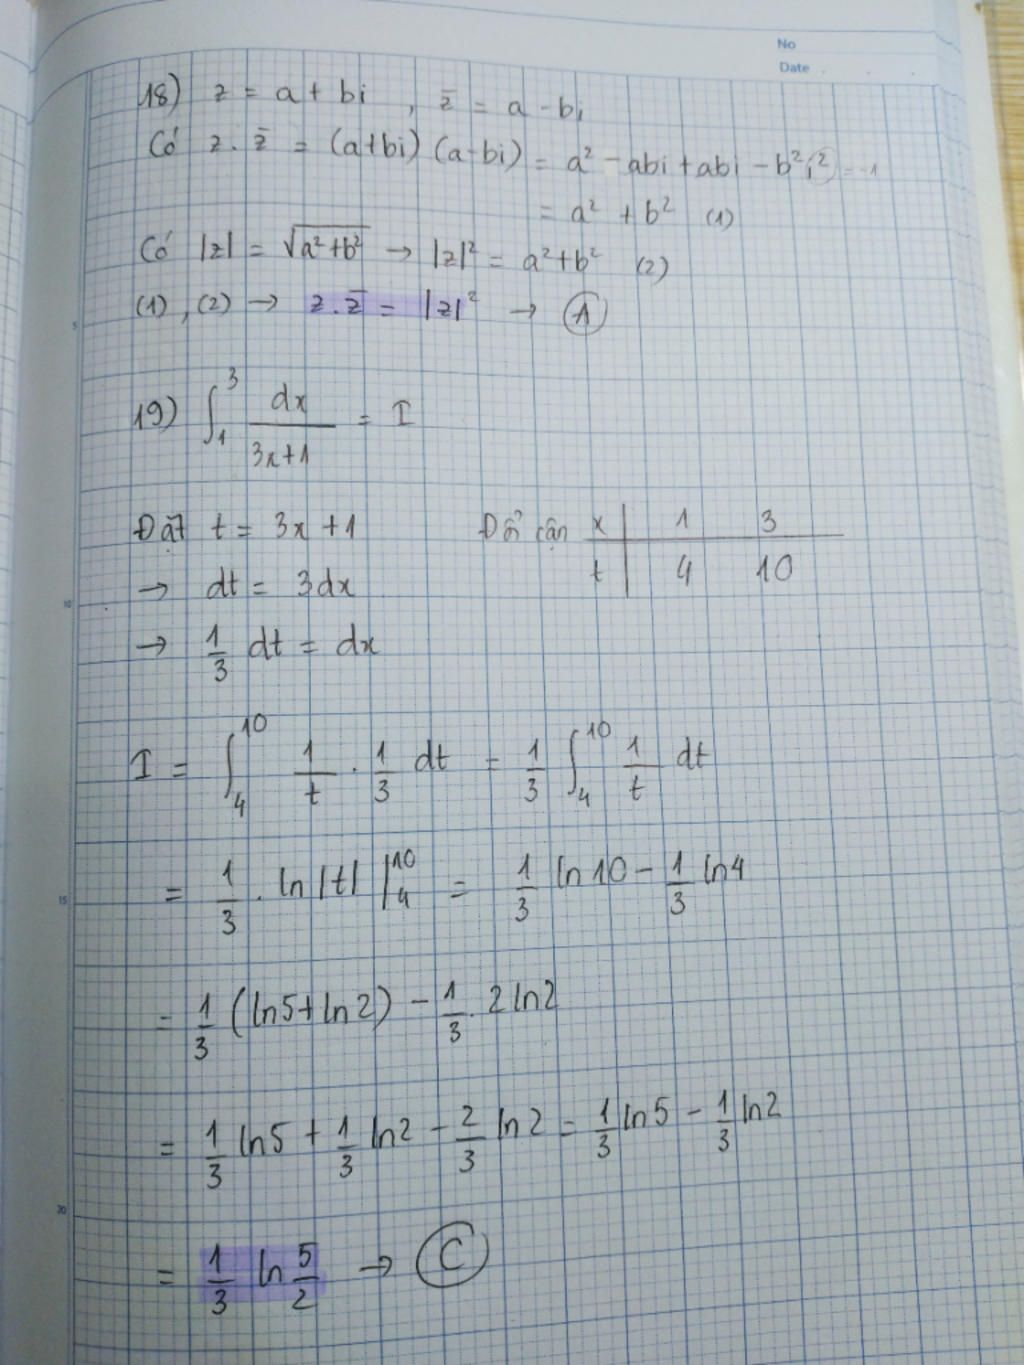 No
Date
18) z = a + bi , z̄ = a - bi
Có z . z̄ = (a+bi) (a-bi) = a² - abi + abi - b²i² = -1
= a² + b² (1)
Có |z| = √(a²+b²) → |z|² = a²+b² (2)
(1), (2) → z . z̄ = |z|² → A
5
19) ∫₁³ dx/(3x+1) = I
Đặt t = 3x + 1 Đổi cận x | 1 3
→ dt = 3dx t | 4 10
10
→ 1/3 dt = dx
I = ∫₄¹⁰ 1/t . 1/3 dt = 1/3 ∫₄¹⁰ 1/t dt
= 1/3 . ln |t| |₄¹⁰ = 1/3 ln10 - 1/3 ln4
15
= 1/3 (ln5 + ln2) - 1/3 . 2 ln2
= 1/3 ln5 + 1/3 ln2 - 2/3 ln2 = 1/3 ln5 - 1/3 ln2
20
= 1/3 ln 5/2 → C